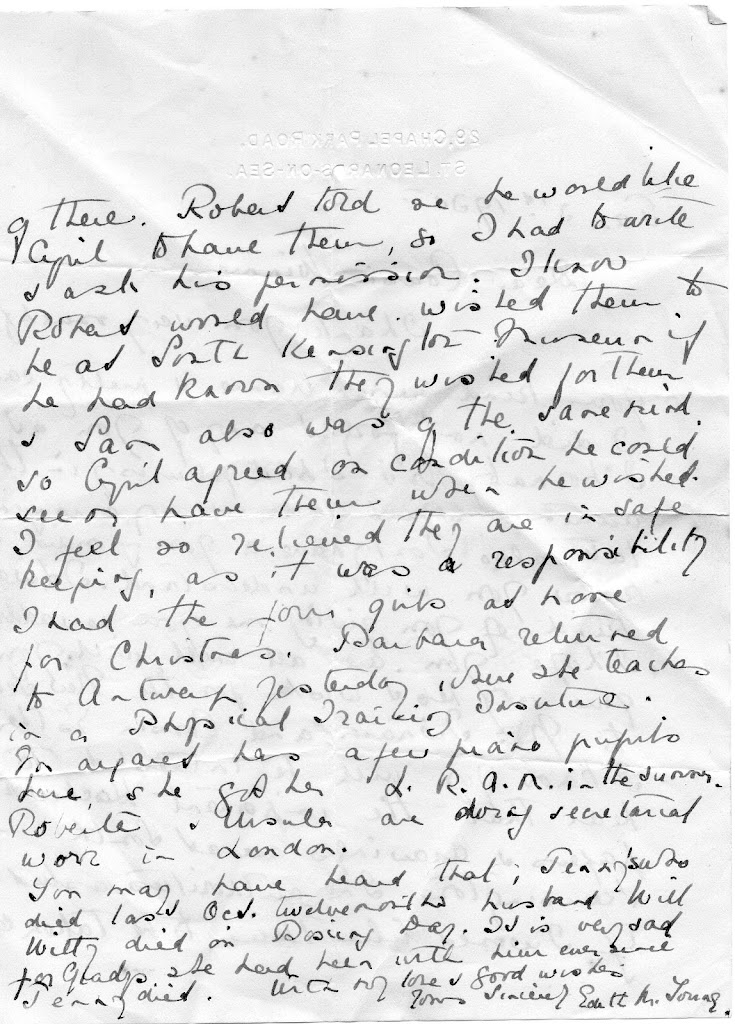 29, CHAPEL PARK ROAD.
ST. LEONARDS-ON-SEA.
of there. Robert told me he would like
Cyril to have them, so I had to write
& ask his permission. I know
Robert would have wished them to
be at South Kensington Museum if
he had known they wished for them
& Sam also was of the same mind.
so Cyril agreed on condition he could
see or have them when he wished.
I feel so relieved they are in safe
keeping, as it was a responsibility
I had the four girls at home
for Christmas. Barbara returned
to Antwerp yesterday, where she teaches
in a Physical Training Institute.
Margaret has a few piano pupils
here, she got her L. R. A. M. in the summer.
Roberta & Ursula are doing secretarial
work in London.
You may have heard that, Jenny's who
died last Oct. twelvemonths husband Will
Witty died on Boxing Day. It is very sad
for Gladys, she had been with him ever since
Jenny died. With my love & good wishes
Yours Sincerely Edith M. Young.